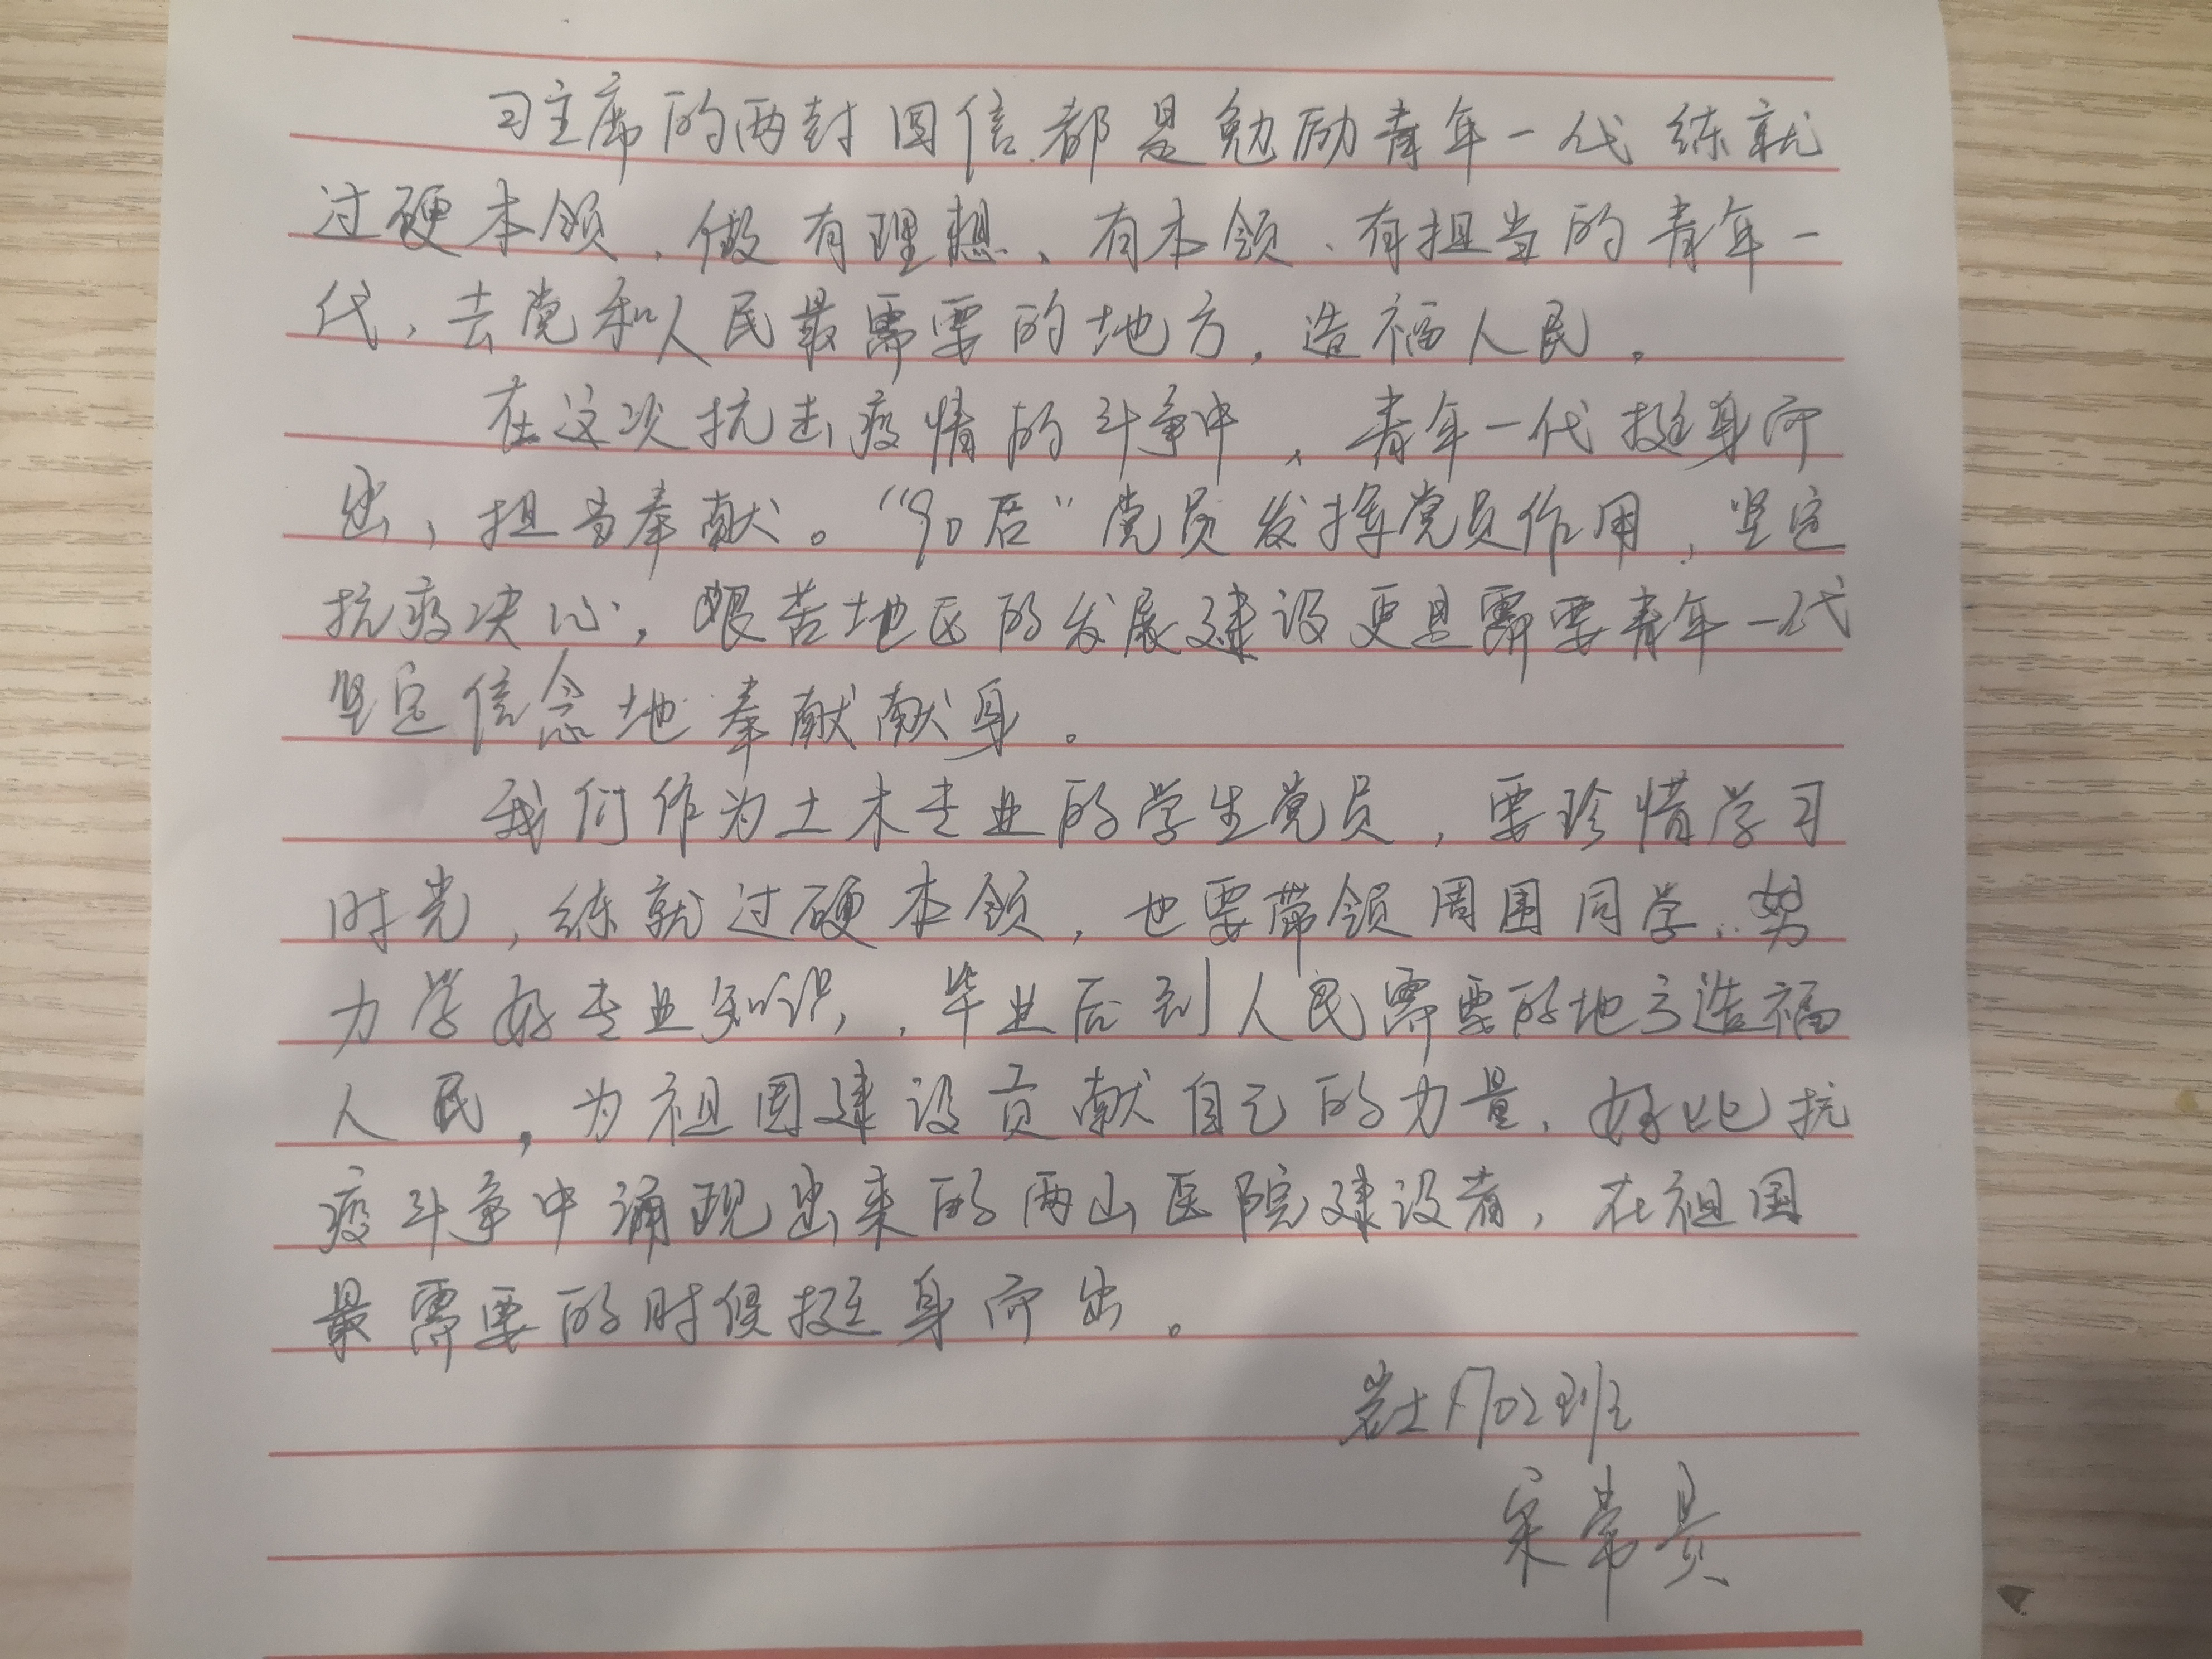 习主席的两封回信都是勉励青年一代练就
过硬本领，做有理想、有本领、有担当的青年一
代，去党和人民最需要的地方，造福人民。
在这次抗击疫情的斗争中，青年一代挺身而
出，担当奉献。“90后”党员发挥党员作用，坚定
抗疫决心，艰苦地区的发展建设更是需要青年一代
坚定信念地奉献献身。
我们作为土木专业的学生党员，要珍惜学习
时光，练就过硬本领，也要带领周围同学，努
力学好专业知识，毕业后到人民需要的地方造福
人民，为祖国建设贡献自己的力量，好比抗
疫斗争中涌现出来的两山医院建设者，在祖国
最需要的时候挺身而出。
岩土1702班
宋常贵